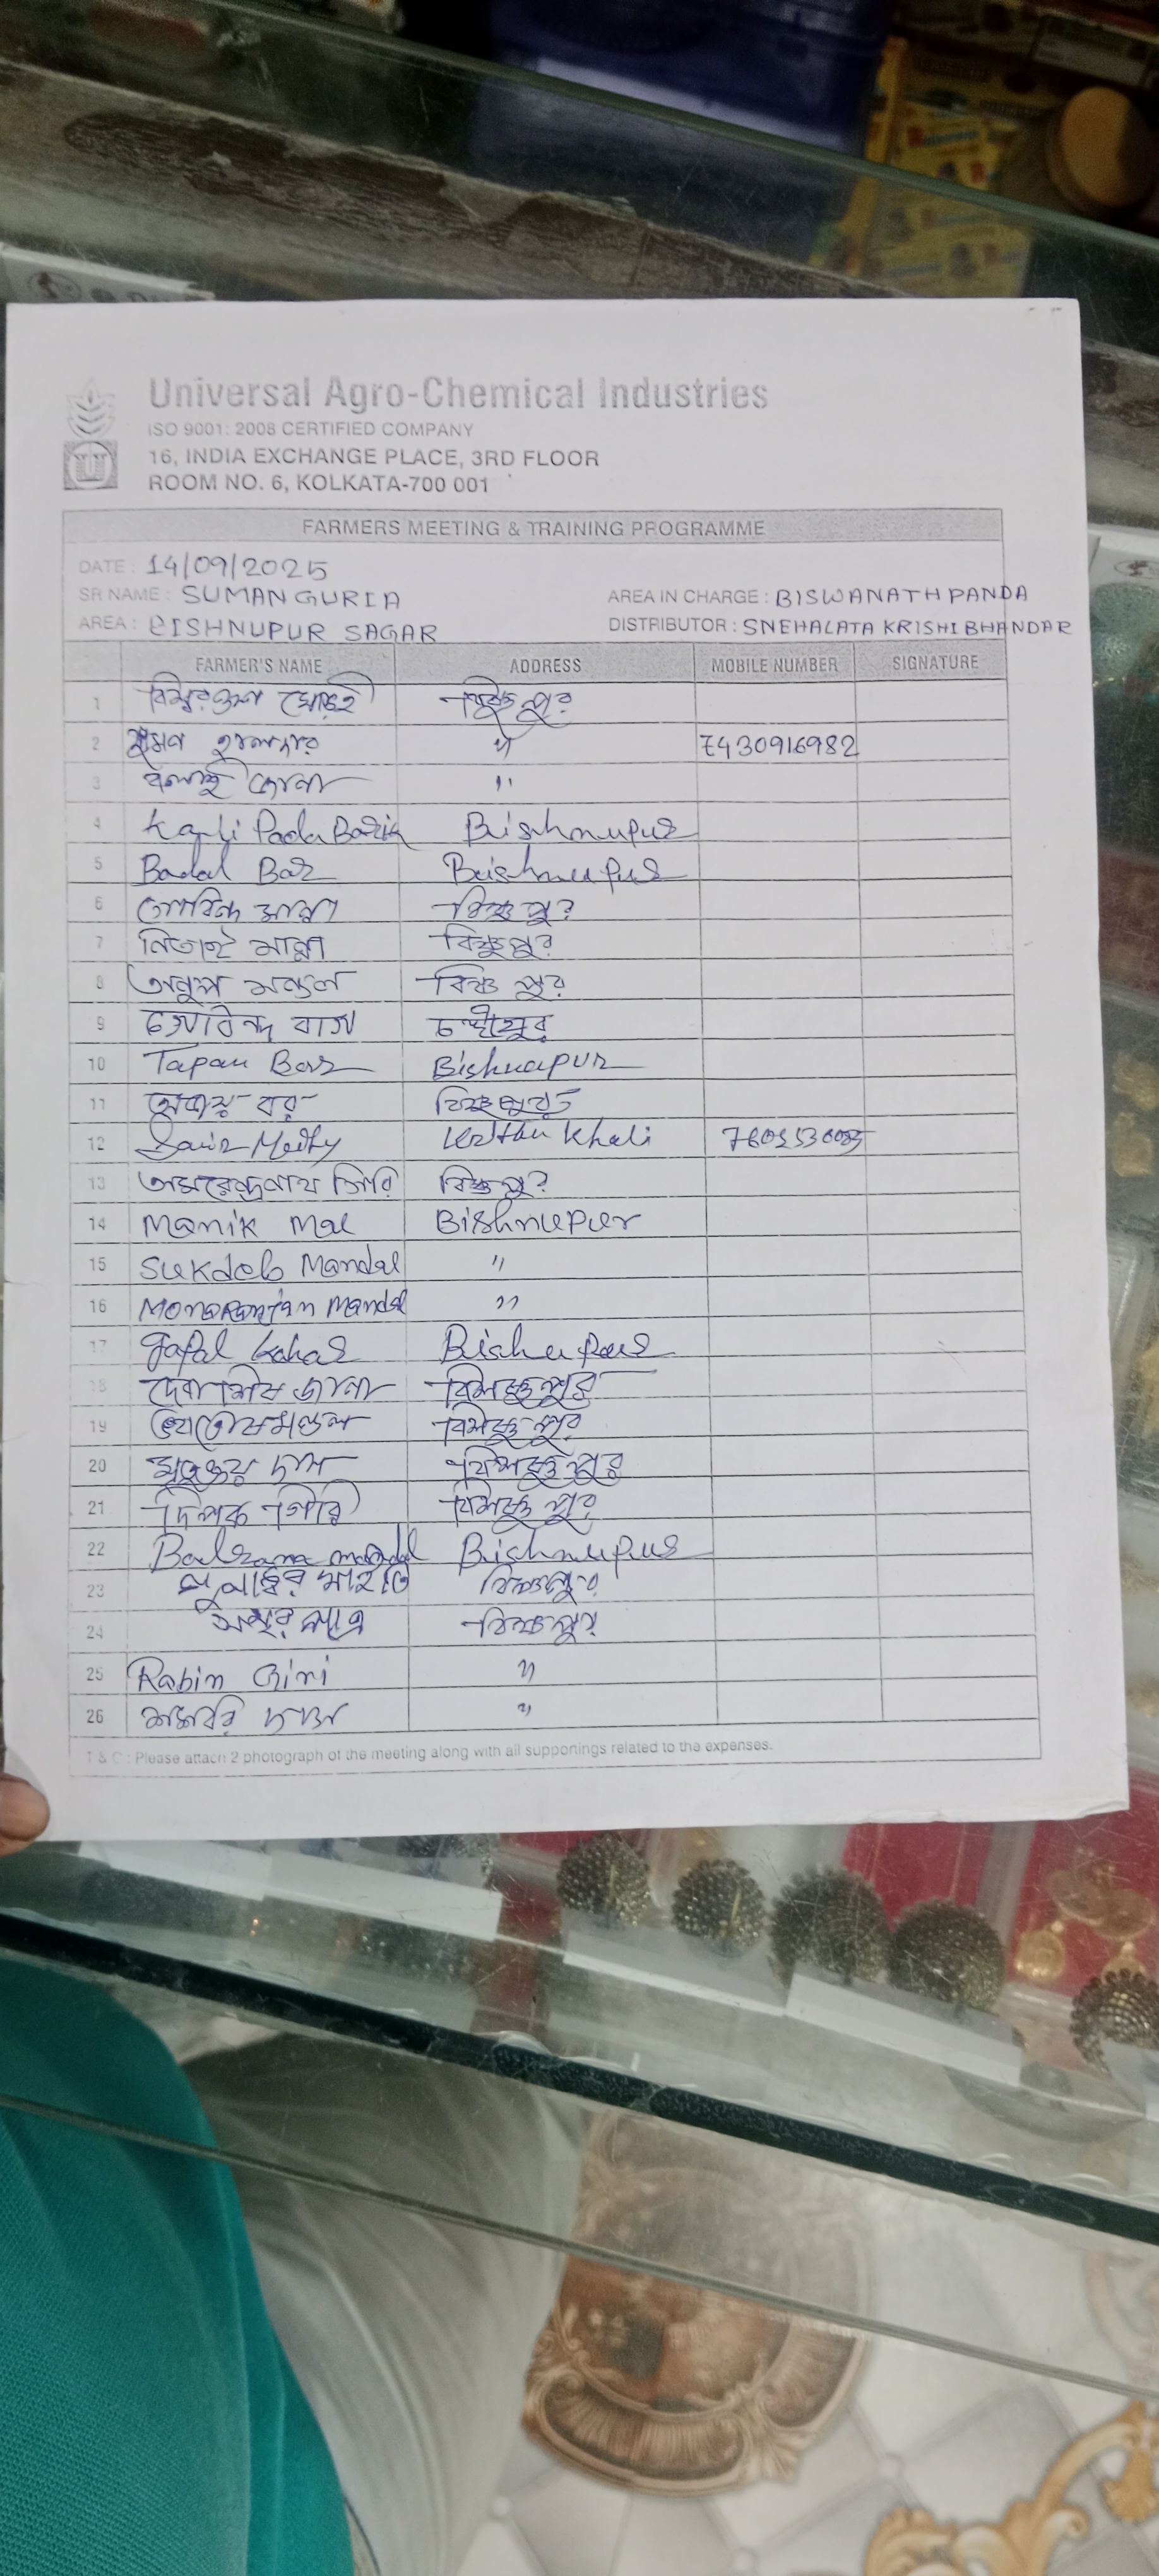 Universal Agro-Chemical Industries
ISO 9001: 2008 CERTIFIED COMPANY
16, INDIA EXCHANGE PLACE, 3RD FLOOR
ROOM NO. 6, KOLKATA-700 001
FARMERS MEETING & TRAINING PROGRAMME
DATE : 14/09/2025
SR NAME : SUMAN GURIA AREA IN CHARGE : BISWANATH PANDA
AREA : BISHNUPUR SAGAR DISTRIBUTOR : SNEHALATA KRISHI BHANDAR
FARMER'S NAME ADDRESS MOBILE NUMBER SIGNATURE
1
2 হালদার " 7430916982
3 বলাই জানা "
4 Kali Pada Barik Bishnupur
5 Badal Bar Bishnupur
6 গোবিন্দ মান্না বিষ্ণুপুর
7 নিতাই মান্না বিষ্ণুপুর
8 অনুপ মন্ডল বিষ্ণুপুর
9 গোবিন্দ বাগ চণ্ডীপুর
10 Tapan Bar Bishnupur
11 বর বিষ্ণুপুর
12 Maity Khali
13 অমরেন্দ্রনাথ গিরি বিষ্ণুপুর
14 Manik Mal Bishnupur
15 Sukdeb Mandal "
16 Monoranjan Mandal "
17 Gopal Kahar Bishnupur
18 দেবাশিস জানা
19
20 মৃত্যুঞ্জয় দাস
21 দিপক গিরি
22 Balram mandal Bishnupur
23 মাইতি বিষ্ণুপুর
24 পাত্র বিষ্ণুপুর
25 Rabin Giri "
26 "
T & C : Please attach 2 photograph of the meeting along with all supportings related to the expenses.